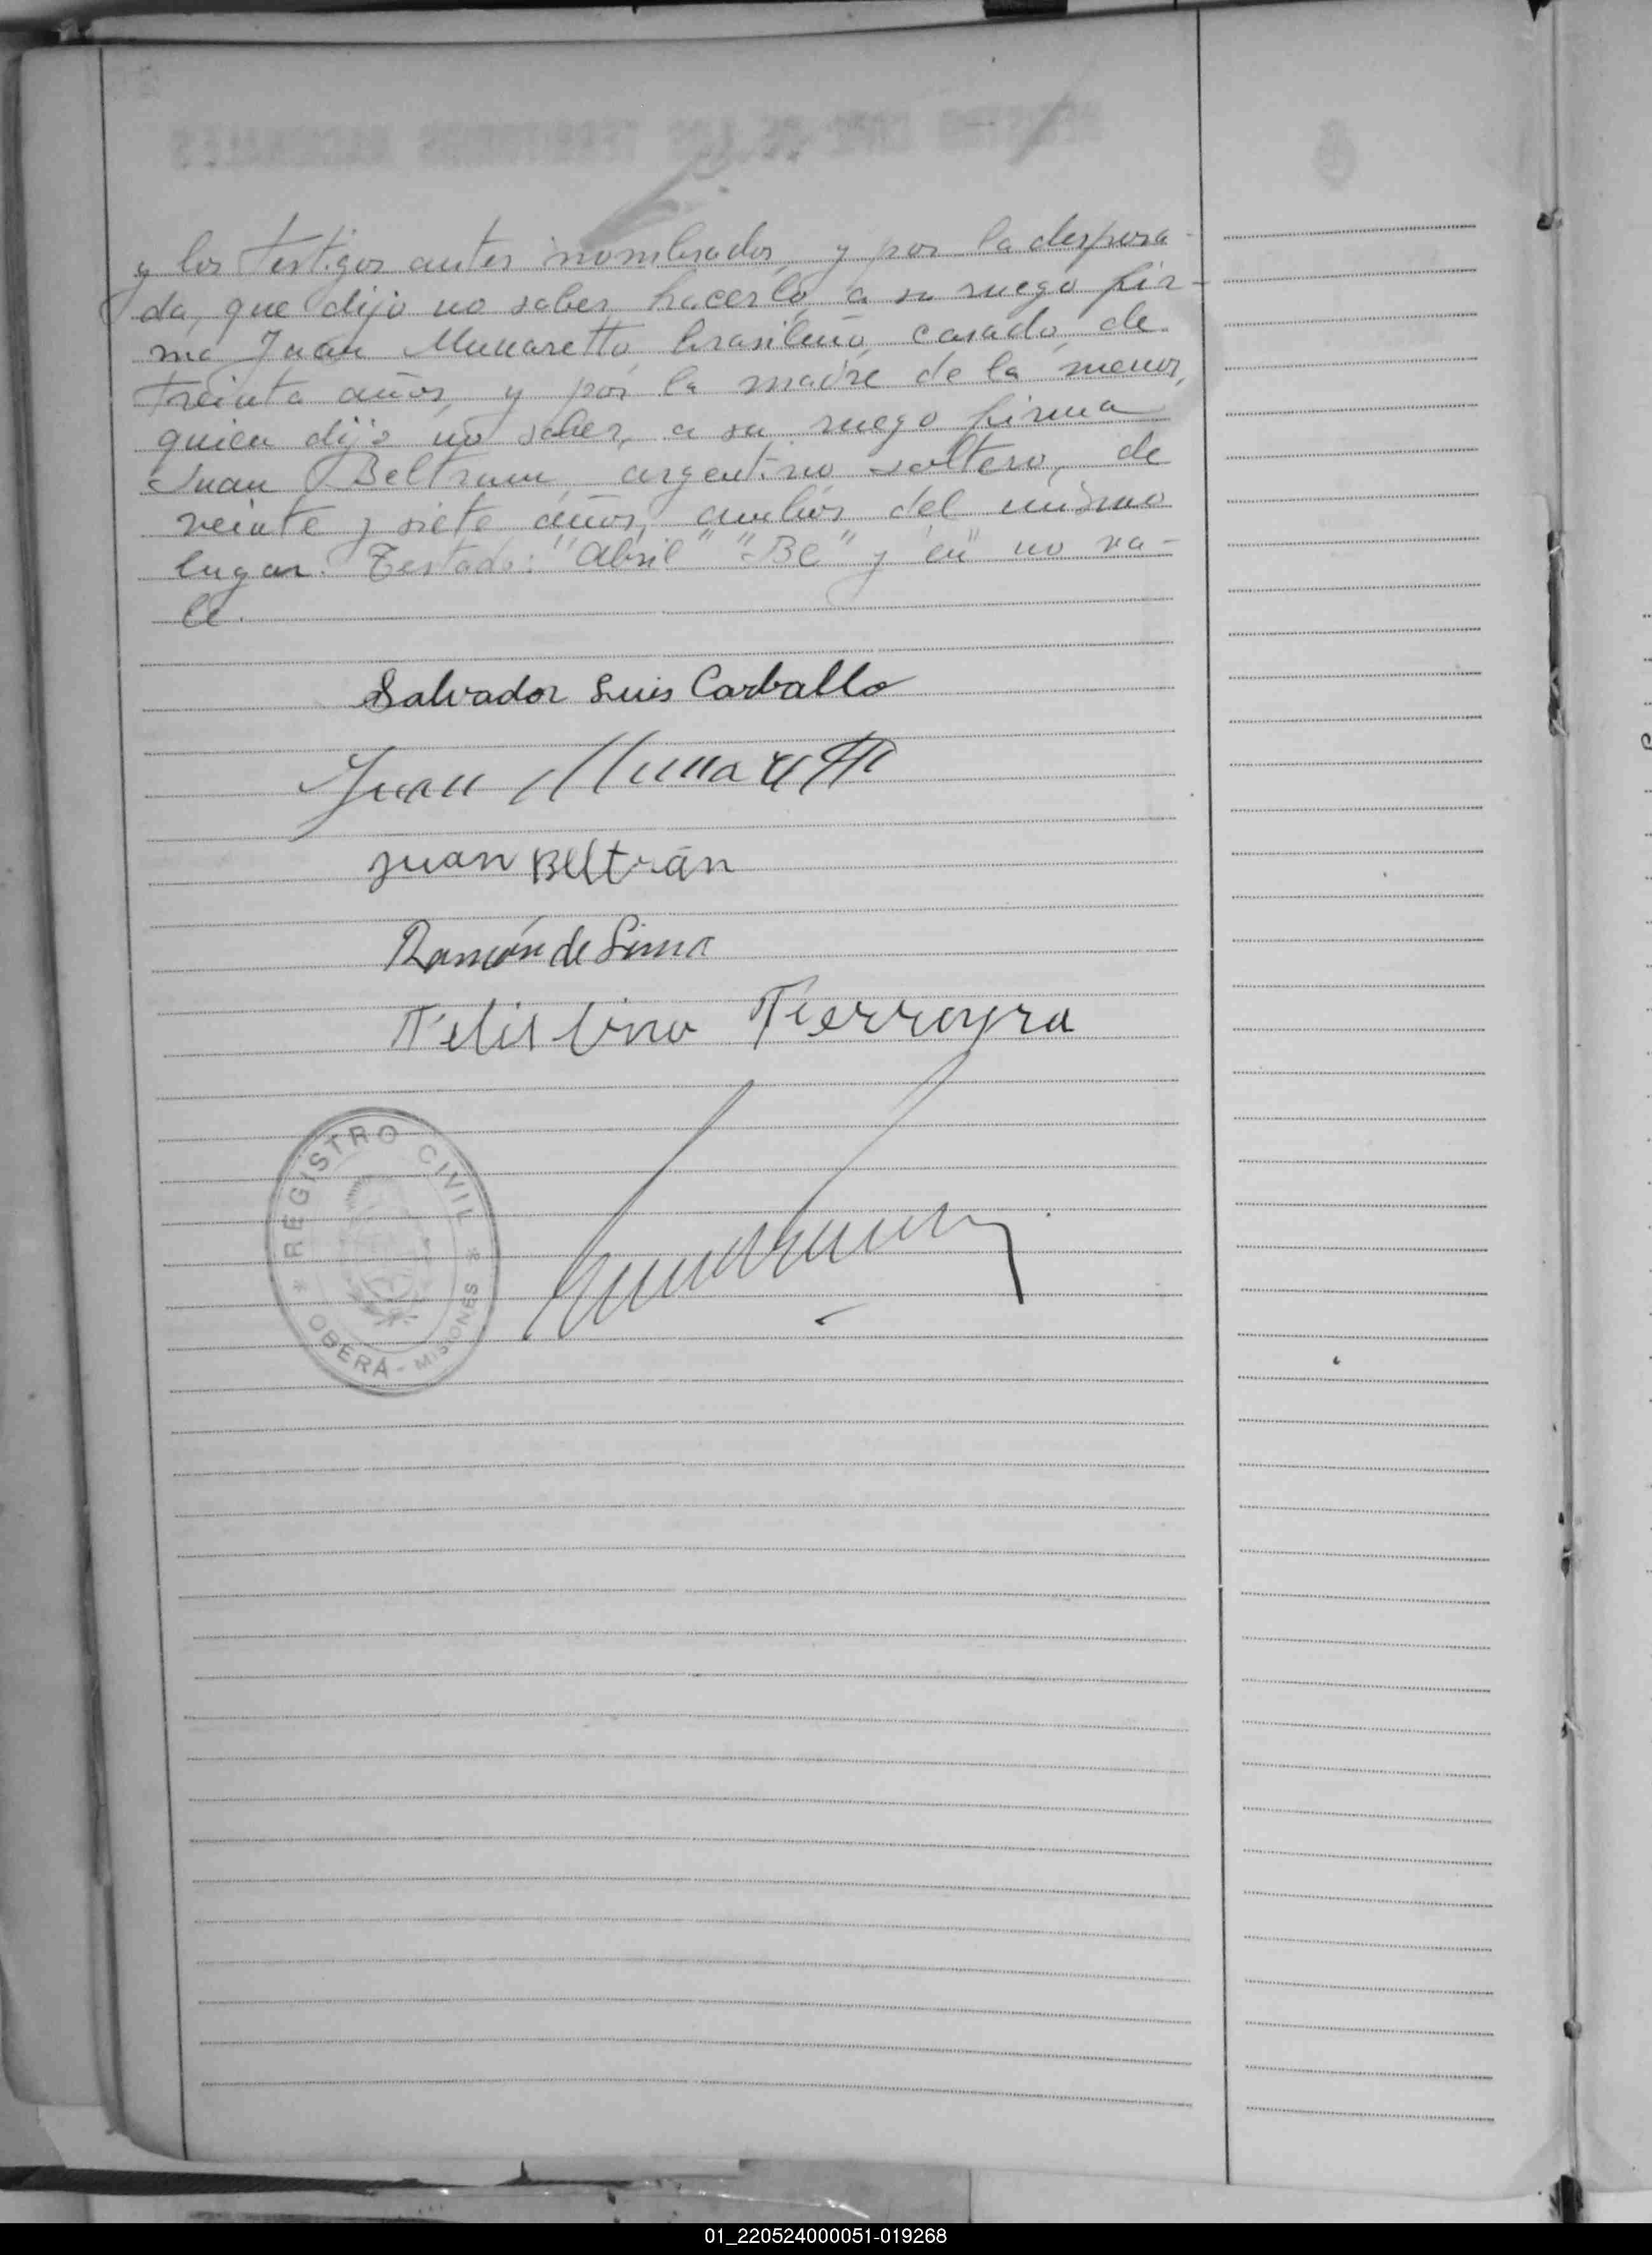 y los testigos antes nombrados, y por la desposa-
da, que dijo no saber hacerlo, a su ruego fir-
ma Juan Munaretto, brasileño, casado, de
treinta años, y por la madre de la menor,
quien dijo no saber, a su ruego firma
Juan Beltram, argentino soltero, de
veinte y siete años, ambos del mismo
lugar. Testado: "Abril" "Be" y "en" no va-
le.
Salvador Luis Carballo
Juan Munaretto
Juan Beltrán
Ramón de Lima
Felistino Ferreyra
REGISTRO CIVIL
OBERÁ - MISIONES
01_220524000051-019268